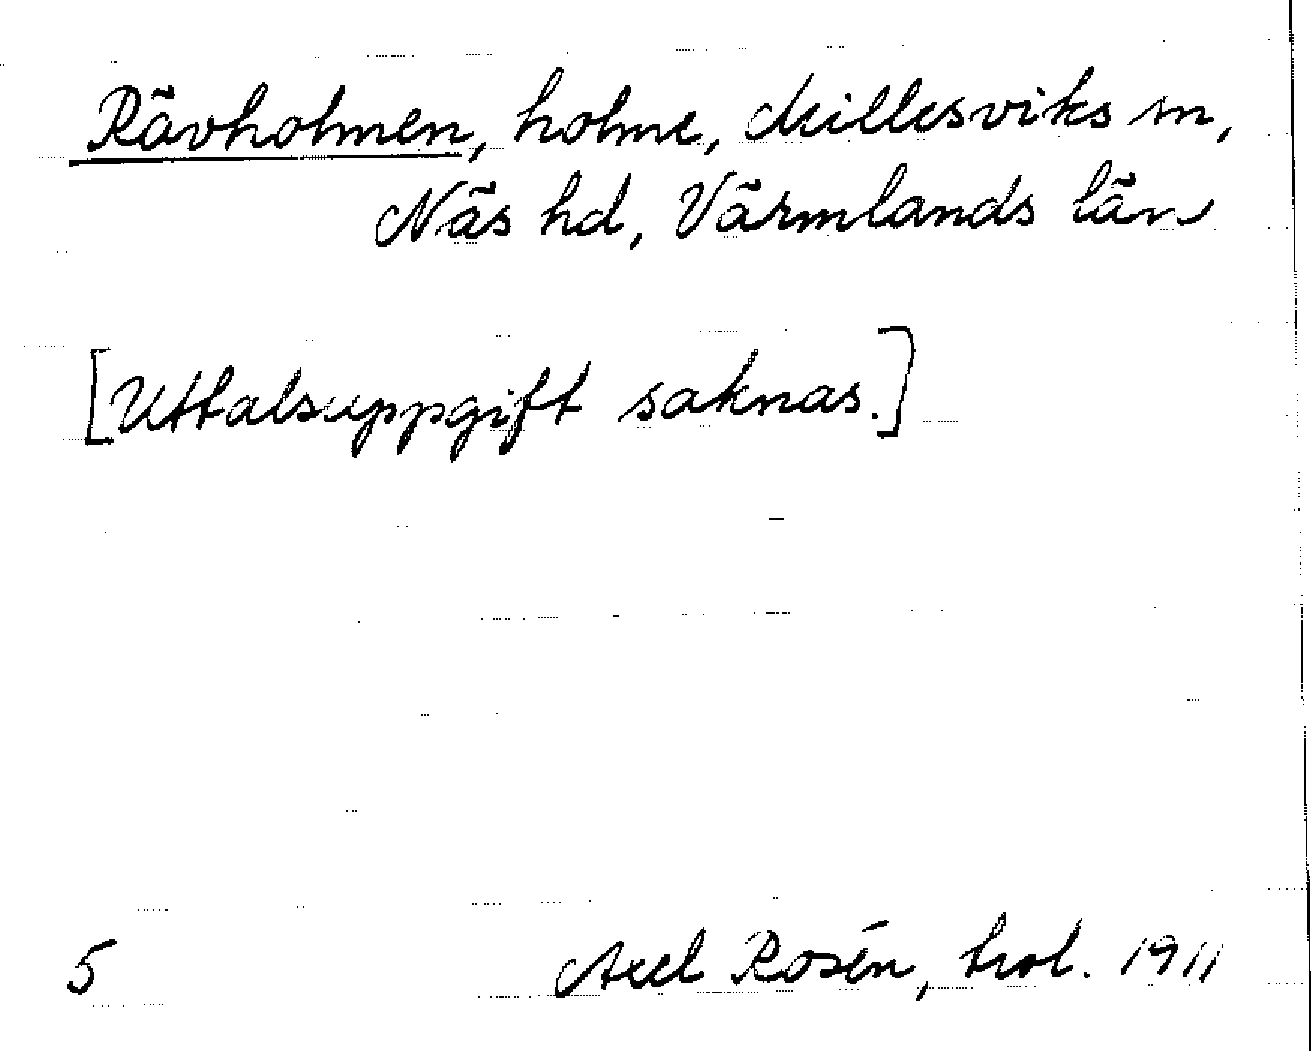 Rävholmen, holme, Millesviks sn,
Näs hd, Värmlands län
[Uttalsuppgift saknas.]
5 Axel Rosén, trol. 1911